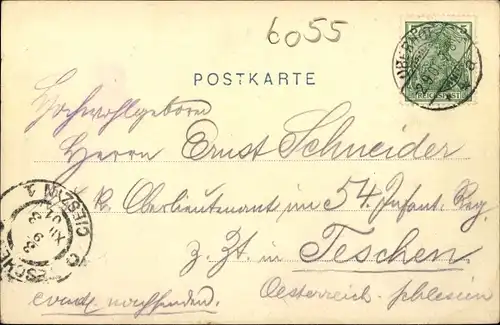 6055
POSTKARTE
5
REICHSPOST
Hochwohlgeboren
Herrn Ernst Schneider
k. Oberlieutenant im 54. Infant. Reg.
z. Zt. in Teschen
Oesterreich. Schlesien
event. nachsenden.
CIESZYN 1